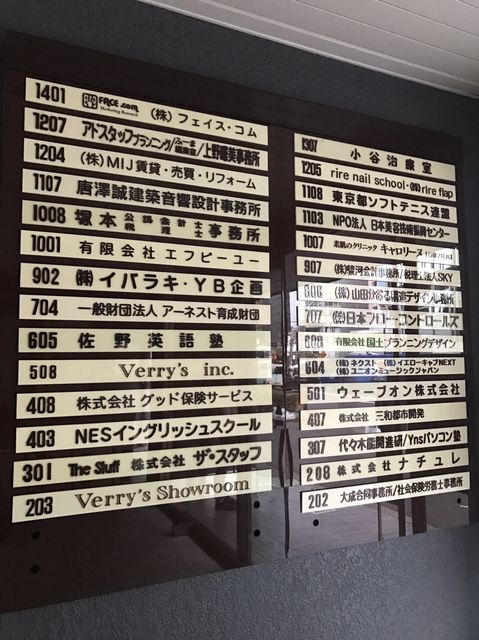 1401 FACE.com Marketing Research (株) フェイス・コム
1207 アドスタッフプランニング/ 編集室/上野曜美事務所
1204 (株)MIJ賃貸・売買・リフォーム
1107 唐澤誠建築音響設計事務所
1008 塚本 公認会計士 税理士 事務所
1001 有限会社エフピーユー
902 ㈱イバラキ・YB企画
704 一般財団法人 アーネスト育成財団
605 佐野英語塾
508 Verry's inc.
408 株式会社 グッド保険サービス
403 NESイングリッシュスクール
301 The Stuff 株式会社 ザ・スタッフ
203 Verry's Showroom
1307 小谷治療室
1205 rire nail school・㈱rire flap
1108 東京都ソフトテニス連盟
1103 NPO法人 日本美容技術振興センター
1007 素肌のクリニック キャロリーヌ
907 ㈱駿河会計事務所/税理士法人SKY
806 (株)山田 構造デザイン事務所
707 (株)日本フロー・コントロールズ
606 有限会社 国士プランニングデザイン
604 (株)ネクスト (株)イエローキャブNEXT
(株)ユニオンミュージックジャパン
501 ウェーブオン株式会社
407 株式会社 三和都市開発
307 代々木能開進研/Ynsパソコン塾
208 株式会社 ナチュレ
202 大成合同事務所/社会保険労務士事務所